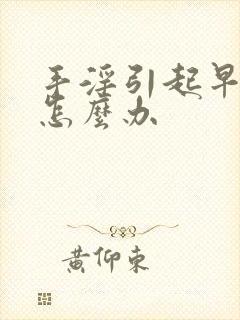 手淫引起早
怎麼办
黄仰东